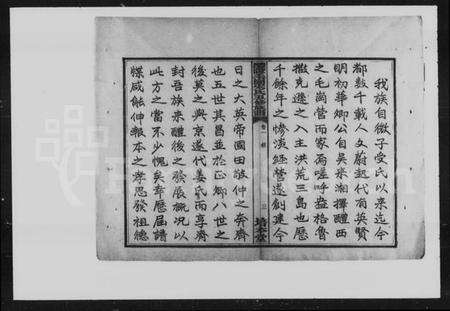 我族自微子受氏以來迄今
都數千載人文蔚起代有英賢
明初華卿公自吳來湘擇醴西
之毛崗當而家焉嗟呼盎格魯
撒克遜之入主洪荒三島也歷
千餘年之慘淡經營遂創建今
卷一
三
培本堂
日之大英帝國田敬仲之奔齊
也五世其昌並於正卿八世之
後莫之與京遂代姜氏而享齊
封吾族來醴後之發展概況以
此方之當不少愧矣幸歷屆譜
牒咸能仲報本之孝思發祖德